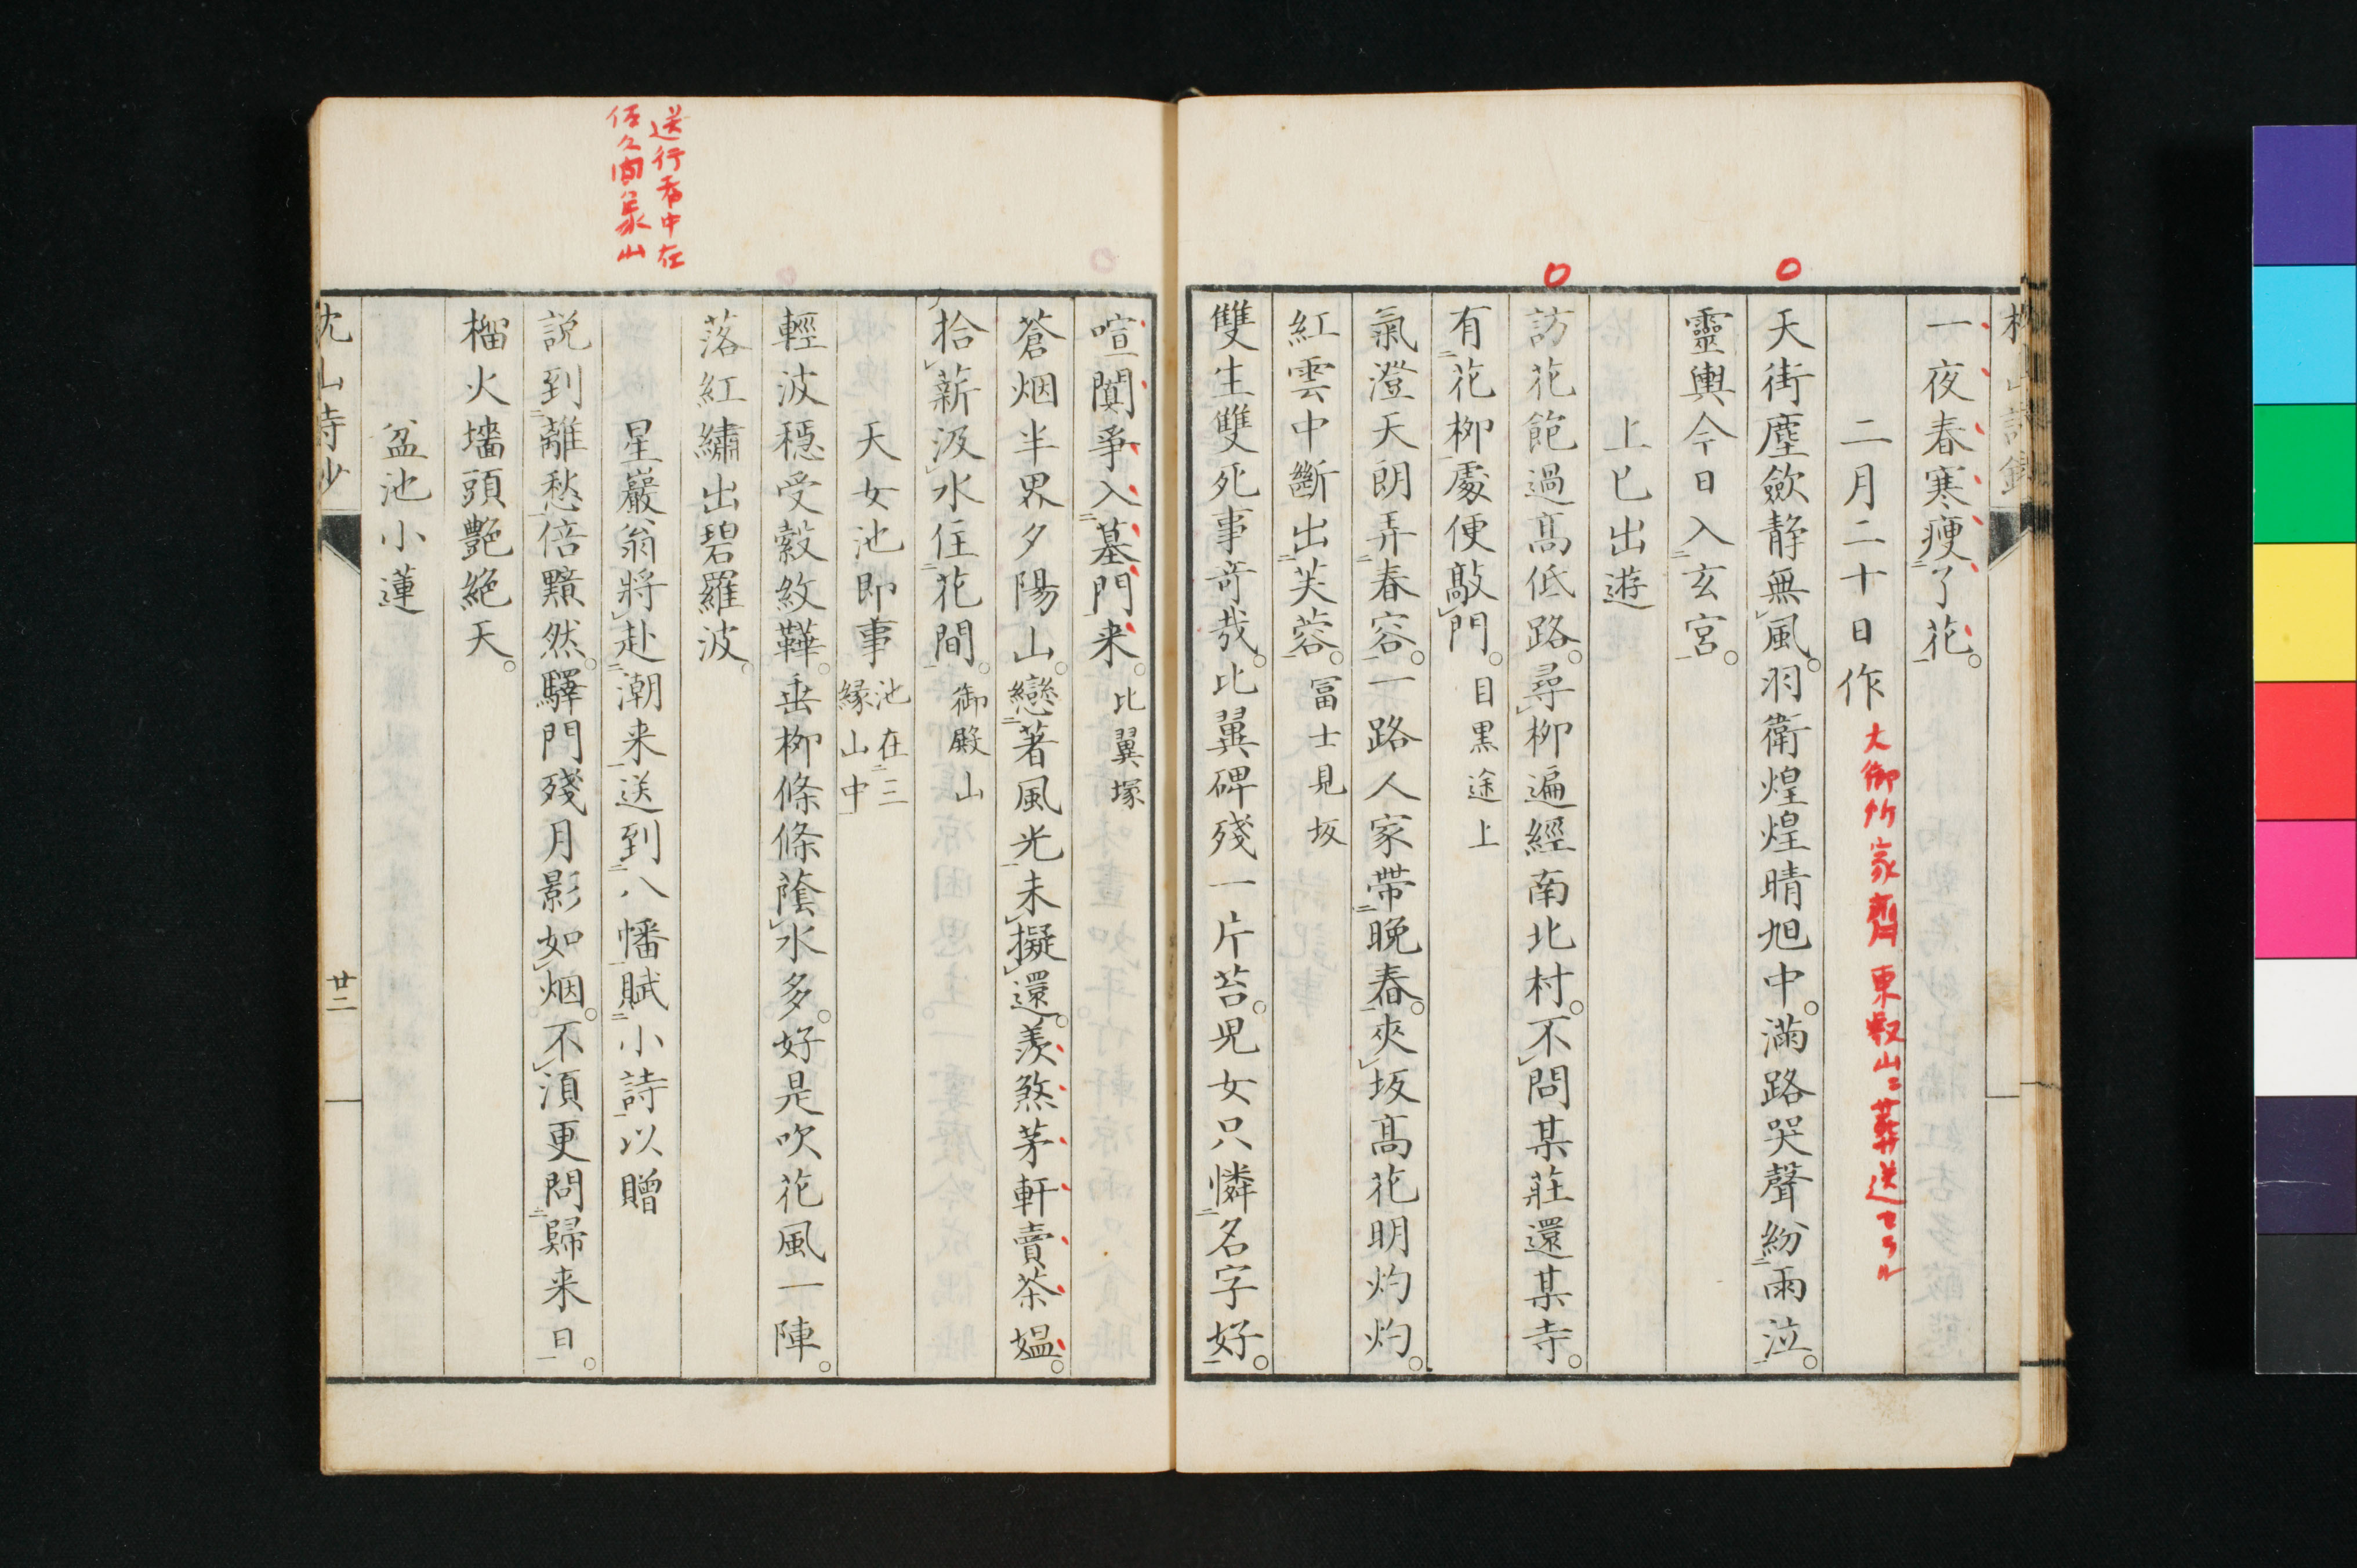 一夜春寒瘦了花。
二月二十日作
大御所家齊 東叡山ニ葬送セラル
天街塵斂静無風。羽衛煌煌晴旭中。滿路哭聲紛雨泣。
靈輿今日入玄宮。
上巳出遊
訪花飽過高低路。尋柳遍經南北村。不問某莊還某寺。
有花柳處便敲門。目黒途上
氣澄天朗弄春容。一路人家帶晚春。夾坂高花明灼灼。
紅雲中斷出芙蓉。冨士見坂
雙生雙死事奇哉。比翼碑殘一片苔。児女只憐名字好。
喧闐爭入墓門来。比翼塚
蒼烟半界夕陽山。戀著風光未擬還。羨煞茅軒賣茶媼。
拾薪汲水住花間。御殿山
天女池即事 池在三縁山中
輕波穏受縠紋鞾。垂柳條條蔭水多。好是吹花風一陣。
落紅繡出碧羅波。
送行看中在
佐久間象山
星巖翁將赴潮来送到八幡賦小詩以贈
説到離愁倍黯然。驛門殘月影如烟。不湏更問歸来日。
榴火墻頭艶絶天。
盆池小蓮
廿二